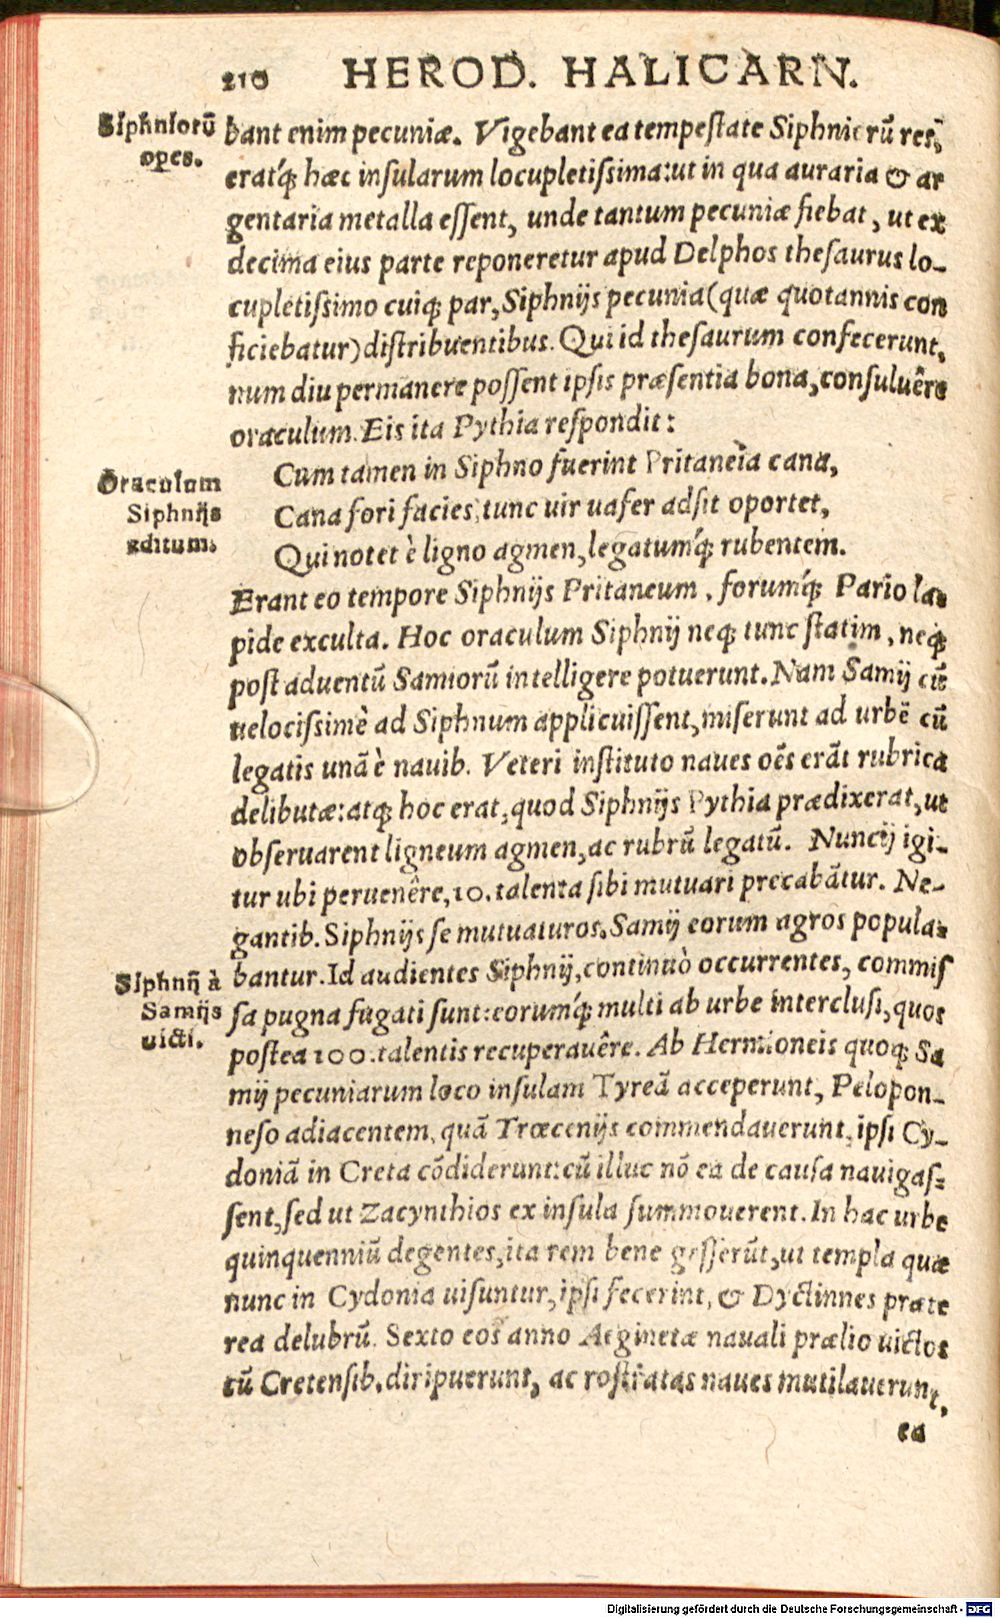 210 HEROD. HALICARN.
Siphniorū
opes.
bant enim pecuniæ. Vigebant ea tempeſtate Siphniorū res,
eratq́; hæc inſularum locupletiſsima: ut in qua auraria & ar
gentaria metalla eſſent, unde tantum pecuniæ fiebat, ut ex
decima eius parte reponeretur apud Delphos theſaurus lo-
cupletiſsimo cuiq; par, Siphnijs pecunia (quæ quotannis con
ficiebatur) diſtribuentibus. Qui id theſaurum confecerunt,
num diu permanere poſſent ipſis præſentia bona, conſuluêre
oraculum. Eis ita Pythia reſpondit:
Oraculum
Siphnijs
editum.
Cum tamen in Siphno fuerint Pritaneia cana,
Cana fori facies, tunc uir uafer adſit oportet,
Qui notet è ligno agmen, legatumq́; rubentem.
Erant eo tempore Siphnijs Pritaneum, forumq́; Pario la-
pide exculta. Hoc oraculum Siphnij neq; tunc ſtatim, neq;
poſt aduentū Samiorū intelligere potuerunt. Nam Samij cū
uelociſsimè ad Siphnum applicuiſſent, miſerunt ad urbē cū
legatis unā è nauib. Veteri inſtituto naues oēs erāt rubrica
delibutæ: atq; hoc erat, quod Siphnijs Pythia prædixerat, ut
obſeruarent ligneum agmen, ac rubrū legatū. Nuncij igi-
tur ubi peruenêre, 10. talenta ſibi mutuari precabātur. Ne-
gantib. Siphnijs ſe mutuaturos, Samij eorum agros popula-
Siphnij à
Samijs
uicti.
bantur. Id audientes Siphnij, continuò occurrentes, commiſ
ſa pugna fugati ſunt: eorumq́; multi ab urbe intercluſi, quos
poſtea 100. talentis recuperauêre. Ab Hermioneis quoq; Sa
mij pecuniarum loco inſulam Tyreā acceperunt, Pelopon-
neſo adiacentem, quā Trœcenijs commendauerunt, ipſi Cy-
doniā in Creta cōdiderunt: cū illuc nō ea de cauſa nauigaſ-
ſent, ſed ut Zacynthios ex inſula ſummouerent. In hac urbe
quinquenniū degentes, ita rem bene geſſerūt, ut templa quæ
nunc in Cydonia uiſuntur, ipſi fecerint, & Dyctinnes præte
rea delubrū. Sexto eos anno Aeginetæ nauali prælio uictos
cū Cretenſib. diripuerunt, ac roſtratas naues mutilauerunt,
ea
Digitalisierung gefördert durch die Deutsche Forschungsgemeinschaft - DFG